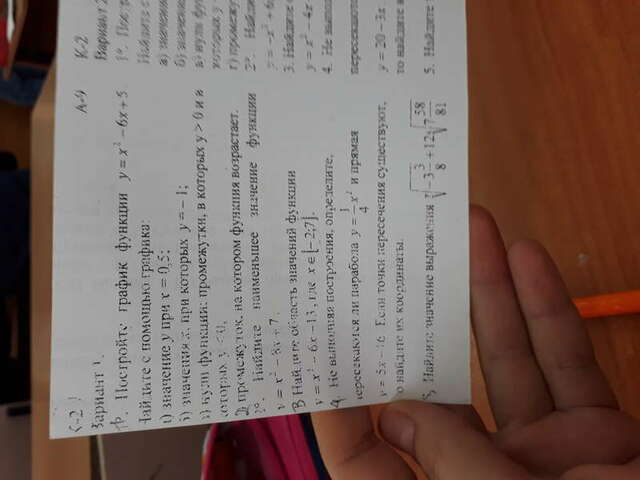 К-2 А-9
Вариант 1.
1º. Постройте график функции y = x² −6x+5.
Найдите с помощью графика:
а) значение y при x = 0,5;
б) значения x, при которых y = −1;
в) нули функции; промежутки, в которых y > 0 и в
которых y < 0;
г) промежуток, на котором функция возрастает.
2º. Найдите наименьшее значение функции
y = x² −8x+7.
3. Найдите область значений функции
y = x² −6x −13, где x∈[−2;7].
4. Не выполняя построения, определите,
пересекаются ли парабола y = 1/4 x² и прямая
y = 5x −16. Если точки пересечения существуют,
то найдите их координаты.
5. Найдите значение выражения −3 3/8 +12 7 58/81
К-2
Вариант 2
1º.
Найдите
а) значение
б) значения
в)
которых y
г)
2º.
y = −x² +
3. Найдите
y = x² −4x
4. Не
пересекаются
y = 20−3x
то найдите
5. Найдите